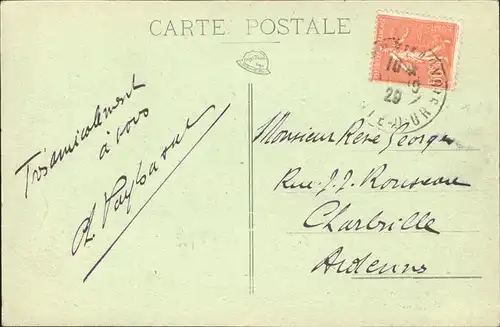 CARTE POSTALE
Très amicalement
à vous
Monsieur René George
Rue J. J. Rousseau
Charleville
Ardennes
10
29